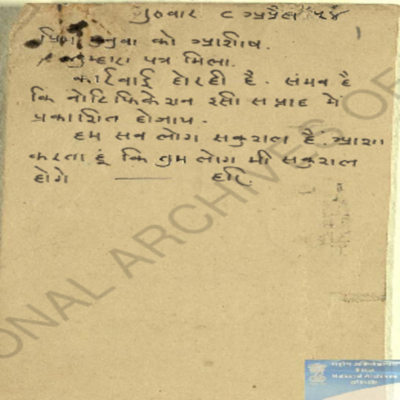 गुरुवार ८ अप्रैल ५४
प्रिय मुनुवा को आशीष.
तुम्हारा पत्र मिला.
कार्रवाई होरही है. संभव है
कि नोटिफिकेशन इसी सप्ताह में
प्रकाशित होजाय.
हम सब लोग सकुशल हैं. आशा
करता हूं कि तुम लोग भी सकुशल
होगे — हरि.
ONAL ARCHIVES OF